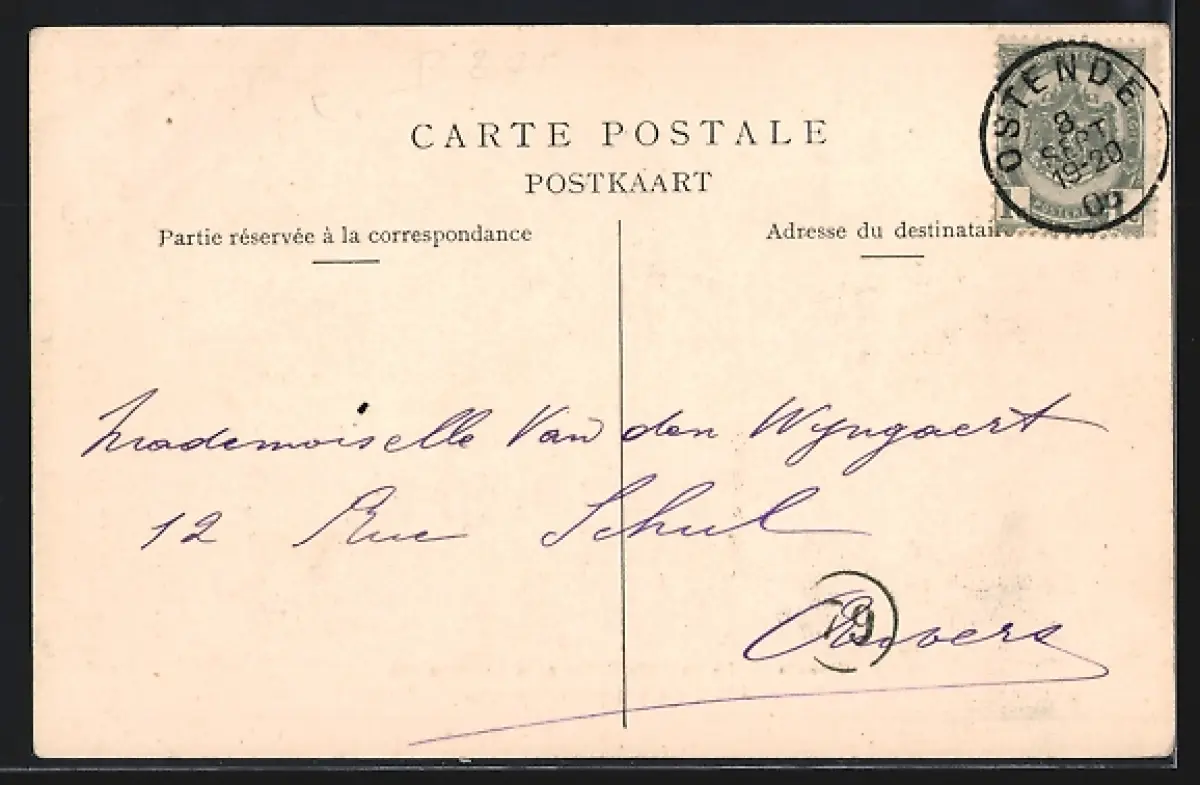 CARTE POSTALE
POSTKAART
OSTENDE
8
SEPT
19-20
Partie réservée à la correspondance
Adresse du destinataire
Mademoiselle Van den Wyngaert
12 Rue Schul
Anvers